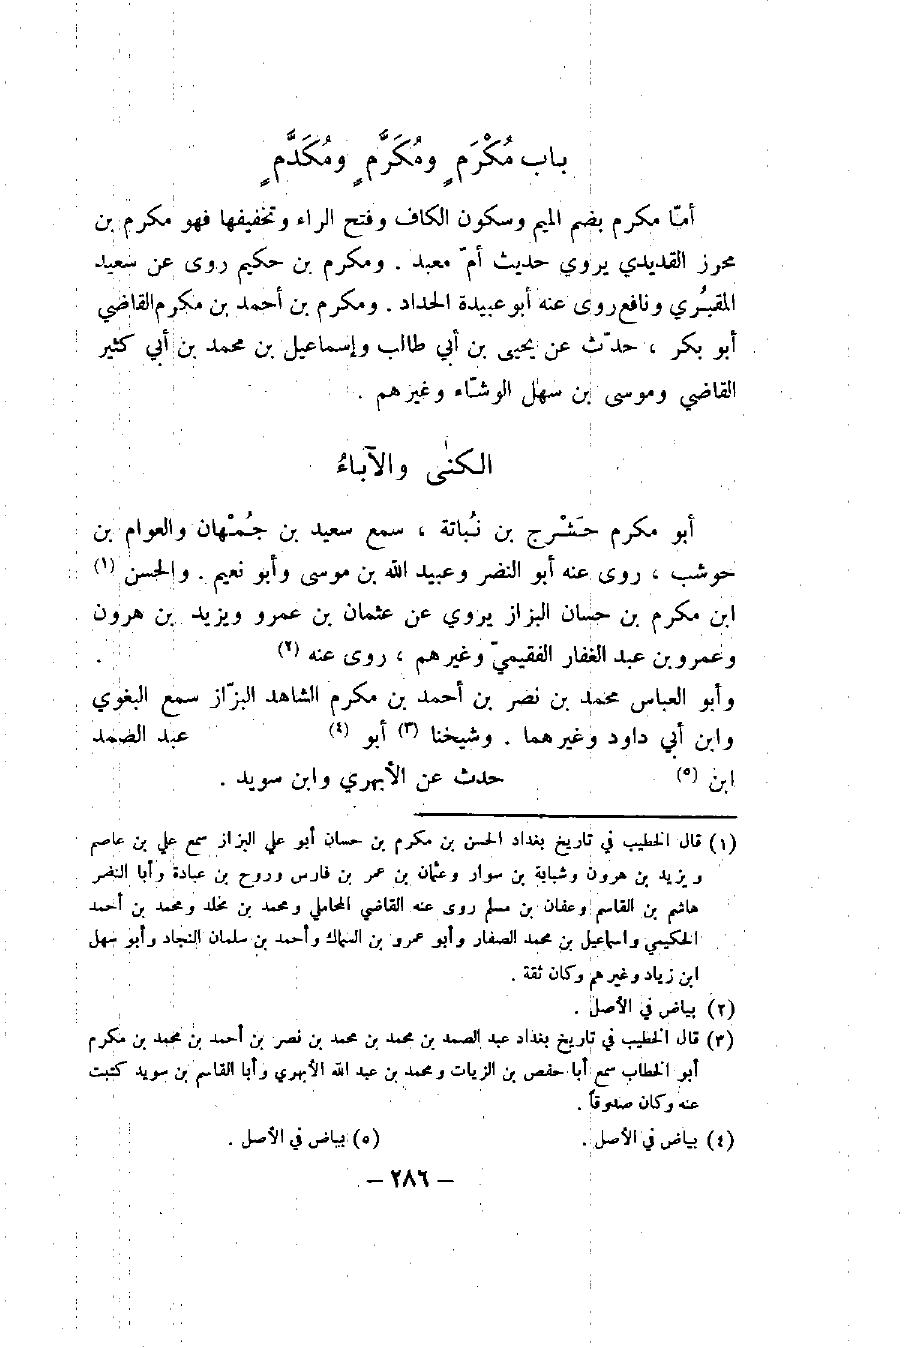 باب مُكْرَمٍ ومُكَرَّمٍ ومُكَدَّمٍ
أمّا مكرم بضم الميم وسكون الكاف وفتح الراء وتخفيفها فهو مكرم بن
محرز القديدي يروي حديث أمّ معبد . ومكرم بن حكيم روى عن سعيد
المقبُري ونافع روى عنه أبو عبيدة الحداد . ومكرم بن أحمد بن مكرم القاضي
أبو بكر ، حدّث عن يحيى بن أبي طالب وإسماعيل بن محمد بن أبي كثير
القاضي وموسى بن سهل الوشّاء وغيرهم .
الكنى والآباءُ
أبو مكرم حَشْرج بن نُباتة ، سمع سعيد بن جُمْهان والعوام بن
حوشب ، روى عنه أبو النضر وعبيد الله بن موسى وأبو نعيم . والحسن (١)
ابن مكرم بن حسان البزاز يروي عن عثمان بن عمرو ويزيد بن هرون
وعمرو بن عبد الغفار الفقيميّ وغيرهم ، روى عنه (٢) .
وأبو العباس محمد بن نصر بن أحمد بن مكرم الشاهد البزّاز سمع البغوي
وابن أبي داود وغيرهما . وشيخنا (٣) أبو (٤) عبد الصمد
ابن (٥) حدث عن الأبهري وابن سويد .
(١) قال الخطيب في تاريخ بغداد الحسن بن مكرم بن حسان أبو علي البزاز سمع علي بن عاصم
ويزيد بن هرون وشبابة بن سوار وعثمان بن عمر بن فارس وروح بن عبادة وأبا النضر
هاشم بن القاسم وعفان بن مسلم روى عنه القاضي المحاملي ومحمد بن مخلد ومحمد بن أحمد
الحكيمي واسماعيل بن محمد الصفار وأبو عمرو بن السماك وأحمد بن سلمان النجاد وأبو سهل
ابن زياد وغيرهم وكان ثقة .
(٢) بياض في الأصل .
(٣) قال الخطيب في تاريخ بغداد عبد الصمد بن محمد بن محمد بن نصر بن أحمد بن محمد بن مكرم
أبو الخطاب سمع أبا حفص بن الزيات ومحمد بن عبد الله الأبهري وأبا القاسم بن سويد كتبت
عنه وكان صدوقاً .
(٤) بياض في الأصل . (٥) بياض في الأصل .
– ٢٨٦ –